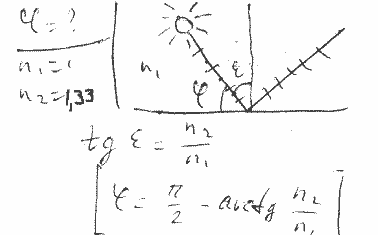 φ = ?
n₁ = 1
n₂ = 1,33
n₁
φ
ε
tg ε = n₂/n₁
[φ = π/2 - arctg n₂/n₁]